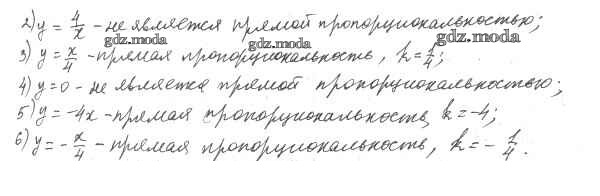 2) y = 4/x - не является прямой пропорциональностью;
gdz.moda
gdz.moda
3) y = x/4 - прямая пропорциональность, k = 1/4;
gdz.moda
4) y = 0 - не является прямой пропорциональностью;
5) y = -4x - прямая пропорциональность, k = -4;
6) y = -x/4 - прямая пропорциональность, k = -1/4.